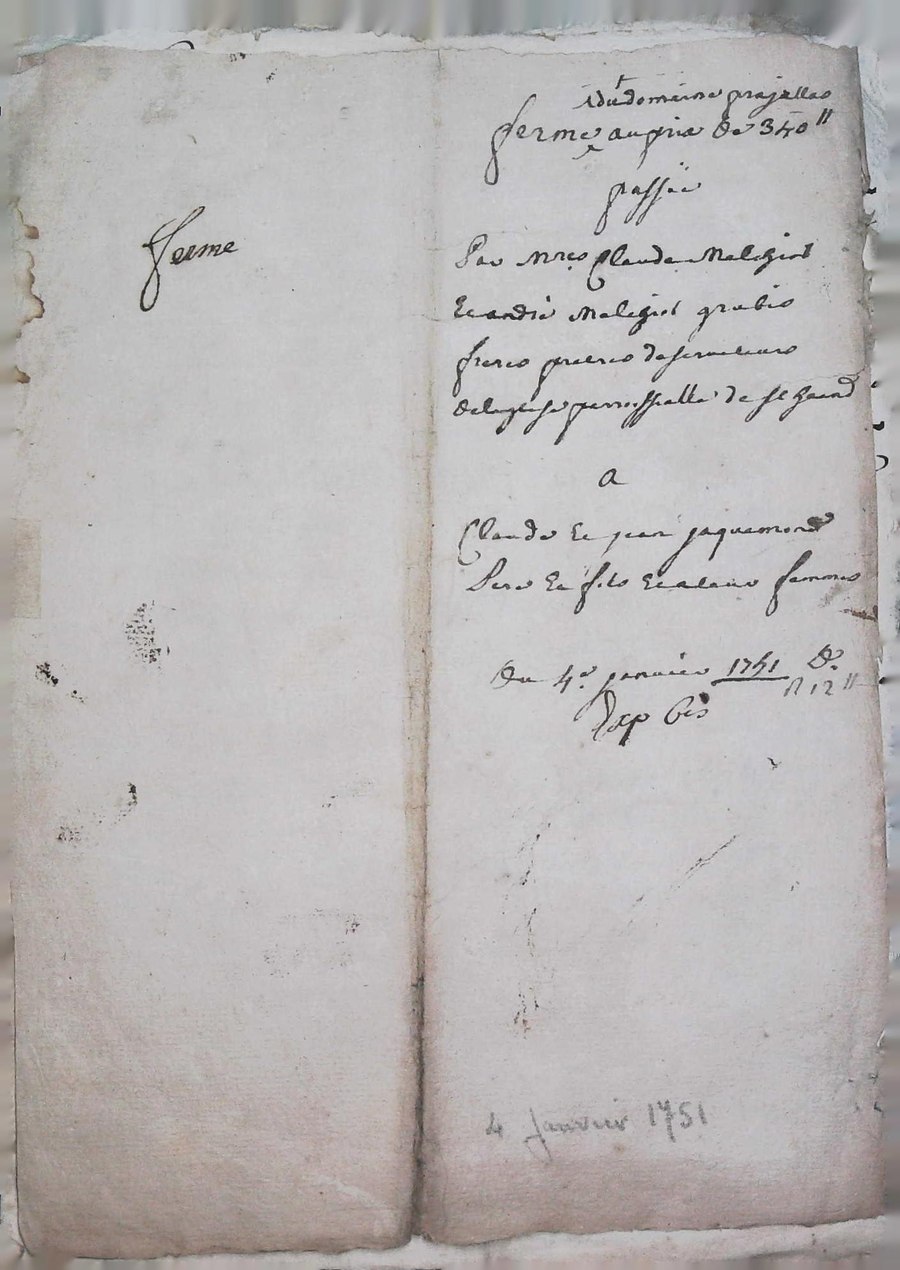 ferme
du domaine prajalas
ferme au prix de 340ᵗᵗ
passée
Par Mres Claude Maligiot
Et andré Maligiot
freres pretres desserviteurs
de leglise parroissialle de st
a
Claude Et jean jaquemond
Pere Et fils Et a leur femmes
du 4e janvier 1751
12ᵗᵗ
Exp bis
4 Janvier 1751